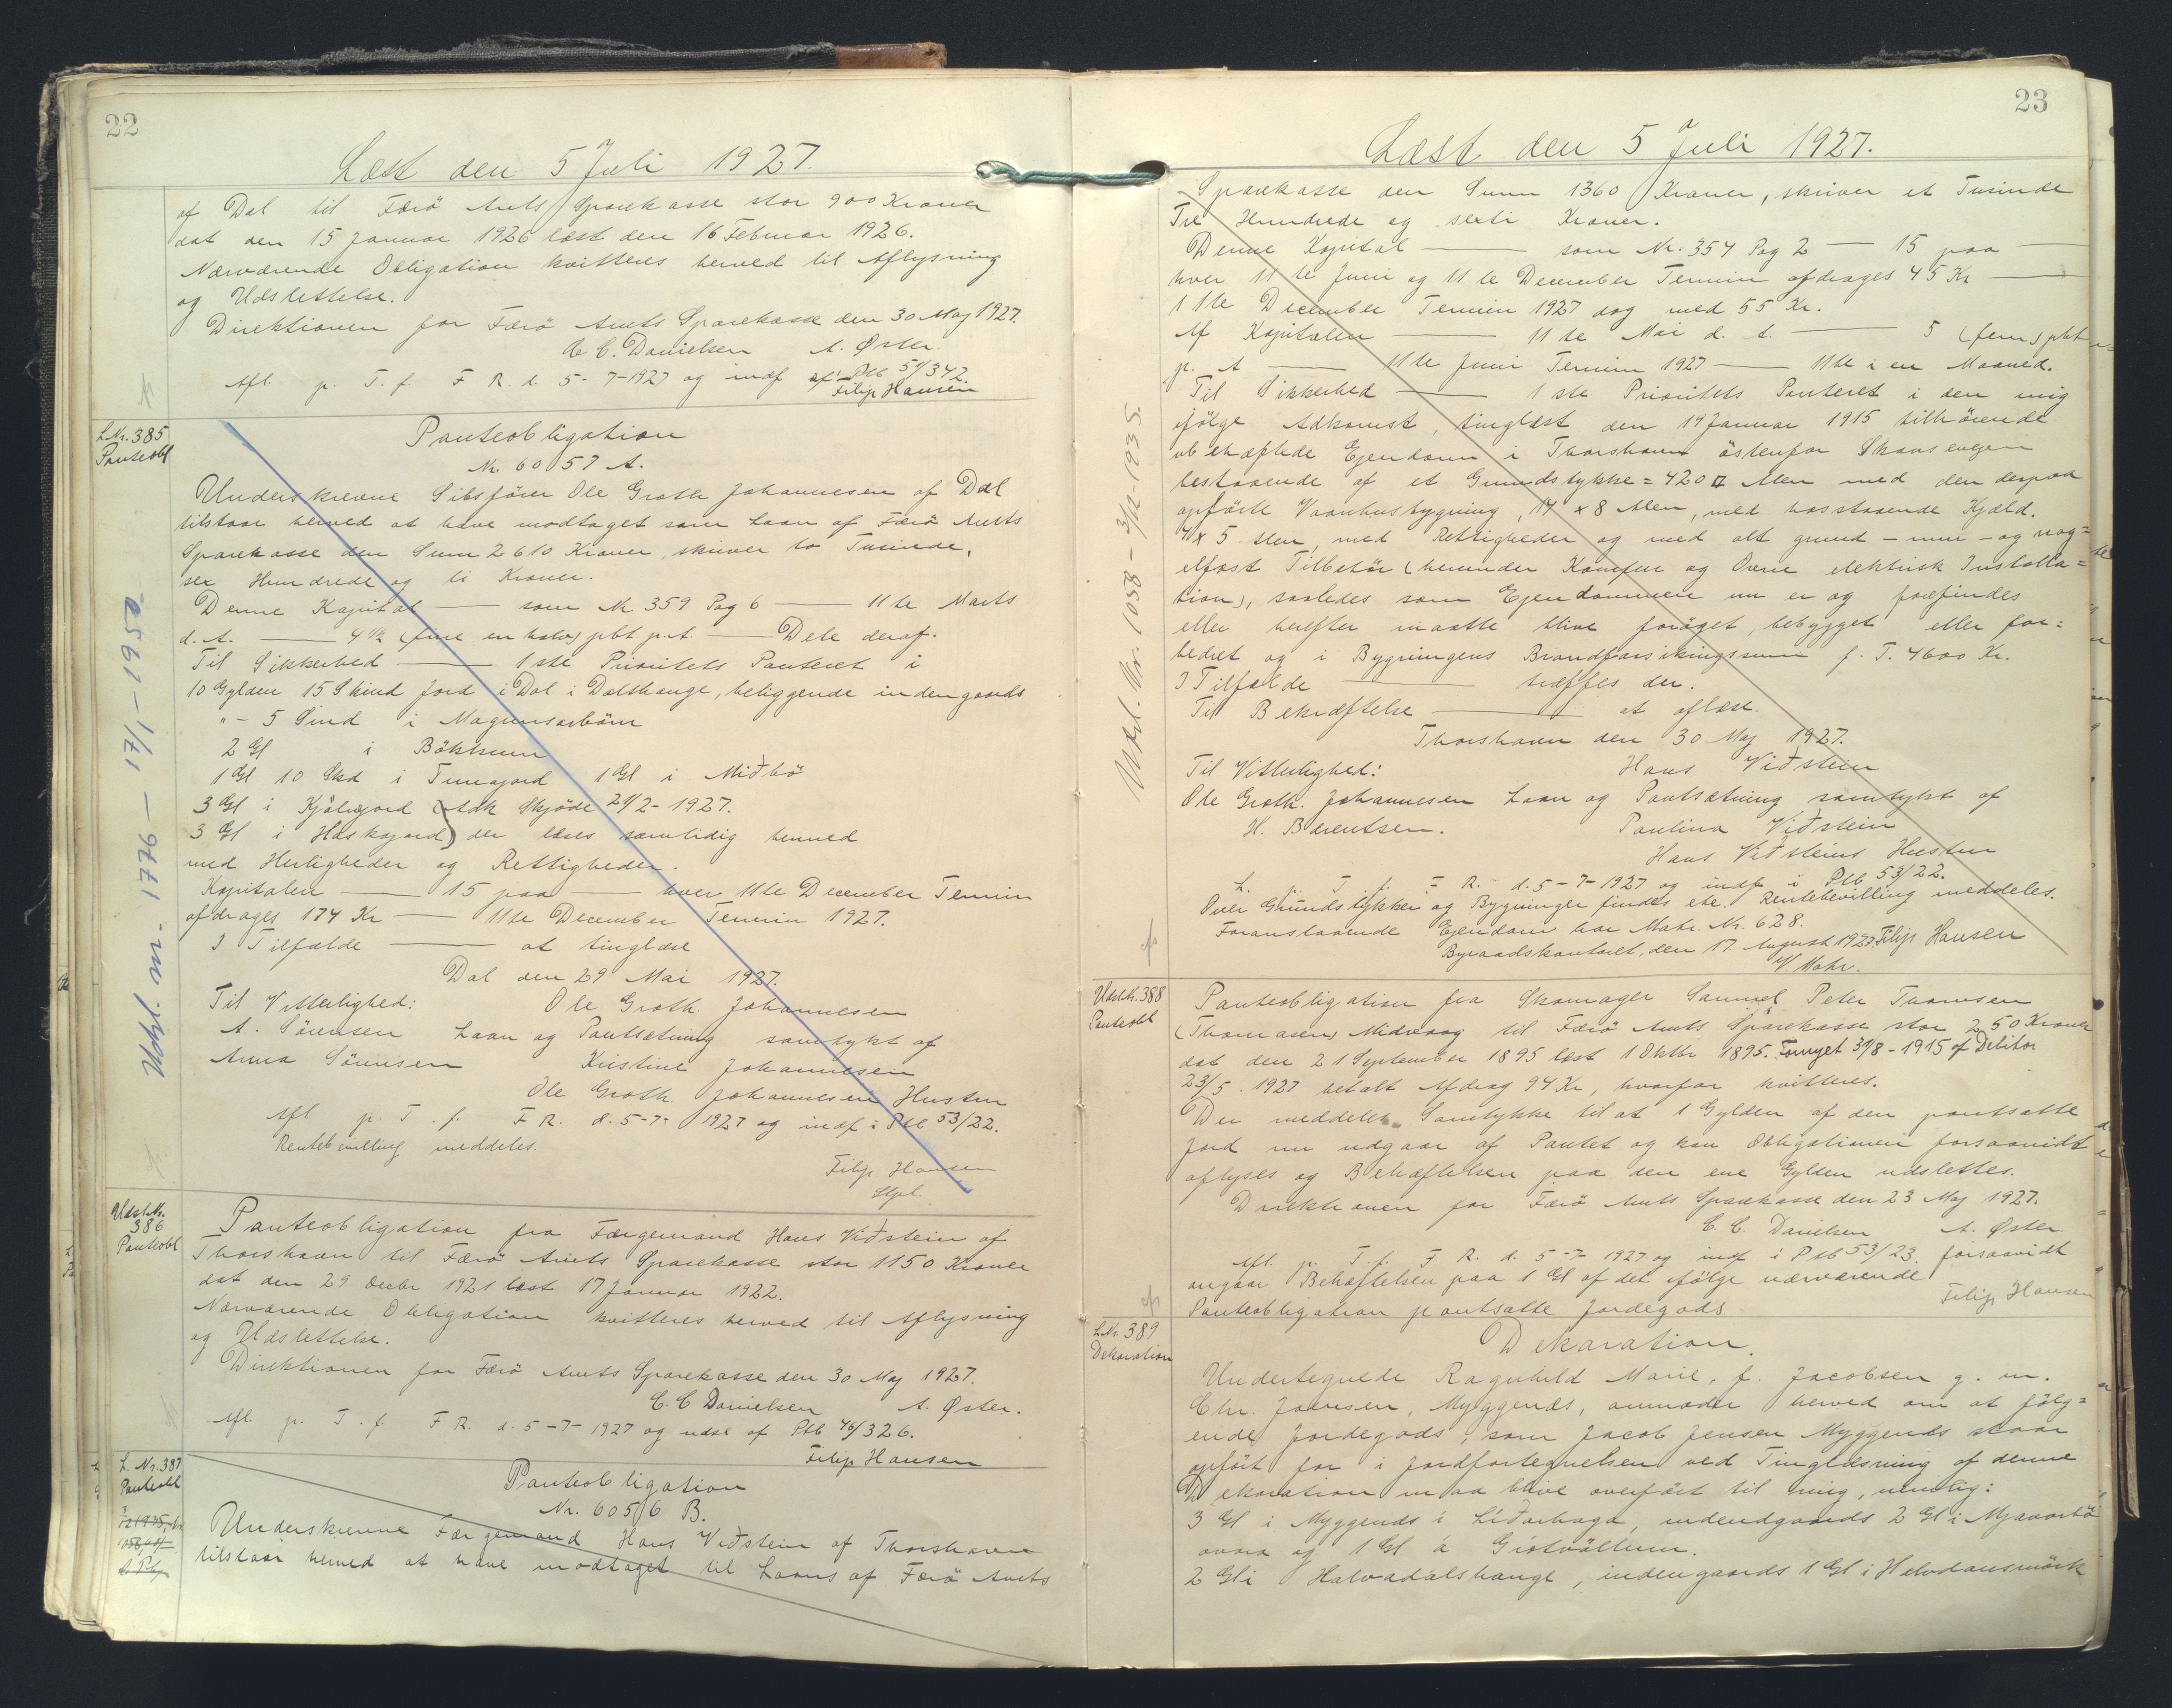 22
Læst den 5 Juli 1927.
af Dal til Færø Amts Sparekasse stor 900 Kroner
dat den 15 Januar 1926 læst den 16 Februar 1926.
Nærværende Obligation kvitteres herved til Aflysning
og Udslettelse.
Direktionen for Færø Amts Sparekasse den 30 Maj 1927.
C. C. Danielsen A. Øster.
Afl. p. T. f. F R. d. 5-7-1927 og indf af Ptb 51/342.
Filip Hansen
L.Nr. 385
Panteobl
Panteobligation
Nr. 6057 A.
Underskrevne Sibsfører Ole Groth Johannesen af Dal
tilstaar herved at have modtaget som Laan af Færø Amts
Sparekasse den Sum 2610 Kroner, skriver to Tusinde,
sex Hundrede og ti Kroner.
Denne Kapital — som Nr 359 Pag 6 — 11te Marts
d. A. — 4 1/2 (fire en halv) pbt. p.A. — Dele deraf.
Til Sikkerhed — 1ste Prioritets Panteret i
10 Gylden 15 Skind Jord i Dal i Dalshauge, beliggende indengaards
" - 5 Sind i Magnusarbøur
2 Gl i Bökkum
1 Gl 10 Skd i Tunajord 1 Gl i Miðbø
3 Gl i Kjálvajord (Adk Skjöde 21/2-1927.
3 Gl i Høskajord) der læses samtidig hermed
med Herligheder og Rettigheder.
Kapitalen — 15 paa — hver 11te December Termin
afdrages 174 Kr — 11te December Termin 1927.
I Tilfælde — at tinglæse
Dal den 29 Mai 1927.
Til Vitterlighed: Ole Groth Johannesen
A. Sörensen Laan og Pantsætning samtykt af
Anna Sörensen Kristine Johannesen
Ole Groth Johannesen Hustru
Afl p. T. f. F R. d. 5-7-1927 og indf i Ptb 53/22.
Rentebevilling meddeles.
Filip Hansen
Udsl. Nr. 1776 - 1/71 - 1952
Udsl.Nr.
386
Panteobl
Panteobligation fra Færgemand Hans Viðstein af
Thorshavn til Færö Amts Sparekasse stor 1150 Kroner
dat den 29 Decbr 1921 læst 17 Januar 1922.
Nærværende Obligation kvitteres herved til Aflysning
og Udslettelse.
Direktionen for Færö Amts Sparekasse den 30 Maj 1927.
C. C Danielsen A. Øster.
Afl. p. T. f. F R. d. 5-7-1927 og udsl af Ptb 46/326.
Filip Hansen
L. Nr. 387
Panteobl
Panteobligation
Nr. 6056 B.
Underskrevne Færgemand Hans Viðstein af Thorshavn
tilstaar herved at have modtaget til Laans af Færö Amts
23
Læst den 5 Juli 1927.
Sparekasse den Sum 1360 Kroner, skriver et Tusinde
Tre Hundrede og sexti Kroner.
Denne Kapital — som Nr. 354 Pag 2 — 15 paa
hver 11te Juni og 11te December Termin afdrages 45 Kr —
11te December Termin 1927 dog med 55 Kr.
Af Kapitalen — 11te Mai d. A. — 5 (fem) pbt
p. A — 11te Juni Termin 1927 — 11te i en Maaned.
Til Sikkerhed — 1ste Prioritets Panteret i den mig
ifölge Adkomst, tinglæst den 19 Januar 1915 tilhörende
ubehæftede Ejendom i Thorshavn östenfor Skansevejen
bestaaende af et Grundstykke = 420 □ Alen med den derpaa
opförte Vaanhusbygning, 14 x 8 Alen, med hosstaaende Kjæld.
4 x 5 Alen, med Rettigheder og med alt grund- mur- og nag=
elfast Tilbehör (herunder Komfur og Ovne elektrisk Installa=
tion), saaledes som Ejendommen nu er og forefindes
eller herefter maatte blive foröget, bebygget eller for=
bedret og i Bygningens Brandforsikringssum p. T. 4600 Kr.
I Tilfælde — træffes der.
Til Bekræftelse — at aflæse.
Thorshavn den 30 Maj 1927.
Til Vitterlighed: Hans Viðstein
Ole Groth. Johannesen Laan og Pantsætning samtykt af
H. Berentsen. Paulina Viðstein
Hans Viðsteins Hustru
L. p. T. f. F R. d. 5-7-1927 og indf i Ptb 53/22.
Over Grundstykker og Bygninger findes ete. Rentebevilling meddeles.
Foranstaaende Ejendom har Matr. Nr. 628. Filip Hansen
Byraadskontoret, den 17. August 1927.
V Mohr.
Udsl. Nr. 1058 - 3/12-1935.
Udsl.Nr. 388
Panteobl
Panteobligation fra Skomager Samuel Peter Thomsen
(Thomasen) Midvaag til Færö Amts Sparekasse stor 250 Kroner
dat den 21 September 1895 læst 1 Oktbr 1895. Fornyet 31/8-1915 af Debitor
23/5. 1927 betalt Afdrag 94 Kr, hvorfor kvitteres.
Der meddeles Samtykke til at 1 Gylden af den pantsatte
Jord nu udgaar af Pantet og kan Obligationen forsaavidt
aflyses og Behæftelsen paa den ene Gylden udslettes.
Direktionen for Færö Amts Sparekasse den 23 Maj 1927.
C. C. Danielsen A. Øster
Afl. p. T. f. F R. d. 5-7-1927 og indf i Ptb 53/23. forsaavidt
angaar Behæftelsen paa 1 Gl af det ifölge nærværende
Panteobligation pantsatte Jordegods. Filip Hansen
L.Nr. 389
Dekaration
Dekaration.
Undertegnede Ragnhild Marie, f. Jacobsen g. m.
Chr. Joensen, Myggenæs, anmoder herved om at fölg=
ende Jordegods, som Jacob Jensen Myggenæs staar
opfört for i Jordfortegnelsen ved Tinglæsning af denne
Dekaration maa blive overfört til mig, nemlig:
3 Gl i Myggenæs i Liðarhaga, indengaards 2 Gl i Mjavarbö
ovara og 1 Gl á Grótvöllum.
2 Gl i Halvadalshauge, indengaards 1 Gl i Helvdansmörk